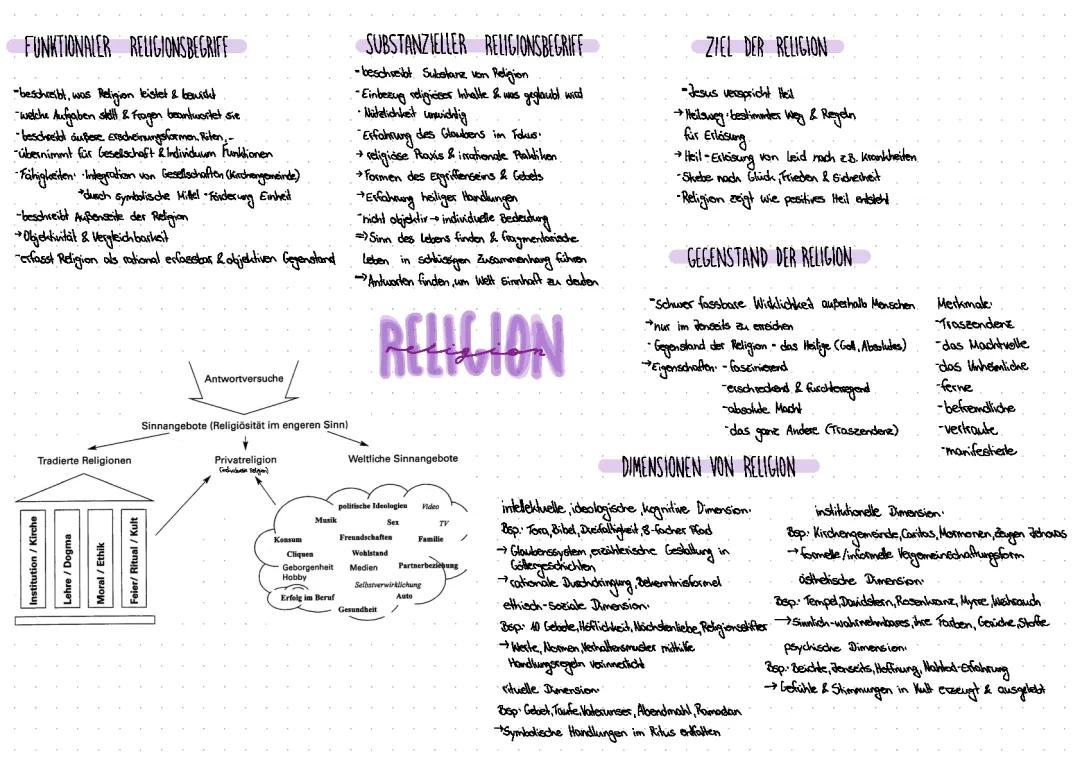 FUNKTIONALER RELIGIONSBEGRIFF
-beschreibt, was Religion leistet & bewirkt
-welche Aufgaben stellt & Fragen beantwortet sie
-beschreibt äußere Erscheinungsformen, Riten,-
-übernimmt für Gesellschaft & Individuum Funktionen
-Fähigkeiten: ·Integration von Gesellschaften (Kirchengemeinde)
→durch symbolische Mittel ·Förderung Einheit
-beschreibt Außenseite der Religion
→Objektivität & Vergleichbarkeit
-erfasst Religion als rational erfassbar & objektiven Gegenstand
SUBSTANZIELLER RELIGIONSBEGRIFF
-beschreibt Substanz von Religion
-Einbezug religiöser Inhalte & was geglaubt wird
·Nützlichkeit unwichtig
-Erfahrung des Glaubens im Fokus:
→religiöse Praxis & irrationale Praktiken
→Formen des Ergriffenseins & Gebets
→Erfahrung heiliger Handlungen
-nicht objektiv→individuelle Bedeutung
⇒Sinn des Lebens finden & fragmentarische
Leben in schlüssigen Zusammenhang führen
→Antworten finden, um Welt sinnhaft zu deuten
ZIEL DER RELIGION
-Jesus verspricht Heil
→Heilsweg: bestimmter Weg & Regeln
für Erlösung
→Heil=Erlösung von Leid nach z.B. Krankheiten
-Strebe nach Glück, Frieden & Sicherheit
-Religion zeigt wie positives Heil entsteht
GEGENSTAND DER RELIGION
-schwer fassbare Wirklichkeit außerhalb Menschen
→nur im Jenseits zu erreichen
-Gegenstand der Religion = das Heilige (Gott, Absolutes)
→Eigenschaften: -faszinierend
-erschreckend & furchterregend
-absolute Macht
-das ganz Andere (Traszendenz)
Merkmale:
-Traszendenz
-das Machtvolle
-das Unheimliche
-ferne
-befremdliche
-vertraute
-manifestierte
RELIGION
religion
Antwortversuche
Sinnangebote (Religiösität im engeren Sinn)
Tradierte Religionen
Privatreligion
(individuelle Religion)
Weltliche Sinnangebote
Institution / Kirche
Lehre / Dogma
Moral / Ethik
Feier/ Ritual / Kult
politische Ideologien Video
Musik Sex TV
Konsum Freundschaften Familie
Cliquen Wohlstand
Geborgenheit Medien Partnerbeziehung
Hobby
Selbstverwirklichung
Erfolg im Beruf Auto
Gesundheit
DIMENSIONEN VON RELIGION
intellektuelle, ideologische, kognitive Dimension:
Bsp.: Tora, Bibel, Dreifaltigkeit, 8-facher Pfad
→Glaubenssystem, erzählerische Gestaltung in
Göttergeschichten
→rationale Durchdringung, Bekenntnisformel
ethisch-soziale Dimension:
Bsp.: 10 Gebote, Höflichkeit, Nächstenliebe, Religionsstifter
→Werte, Normen, Verhaltensmuster mithilfe
Handlungsregeln verinnerlicht
rituelle Dimension:
Bsp: Gebet, Taufe, Vaterunser, Abendmahl, Ramadan
→Symbolische Handlungen im Ritus entfalten
institutionelle Dimension:
Bsp.: Kirchengemeinde, Caritas, Mormonen, Zeugen Jehovas
→formelle/informelle Vergemeinschaftungsform
ästhetische Dimension:
Bsp.: Tempel, Davidstern, Rosenkranz, Myrre, Weihrauch
→Sinnlich-wahrnehmbares, ihre Farben, Gerüche, Stoffe
psychische Dimension:
Bsp.: Beichte, Jenseits, Hoffnung, Nahtod-Erfahrung
→Gefühle & Stimmungen in Kult erzeugt & ausgelebt